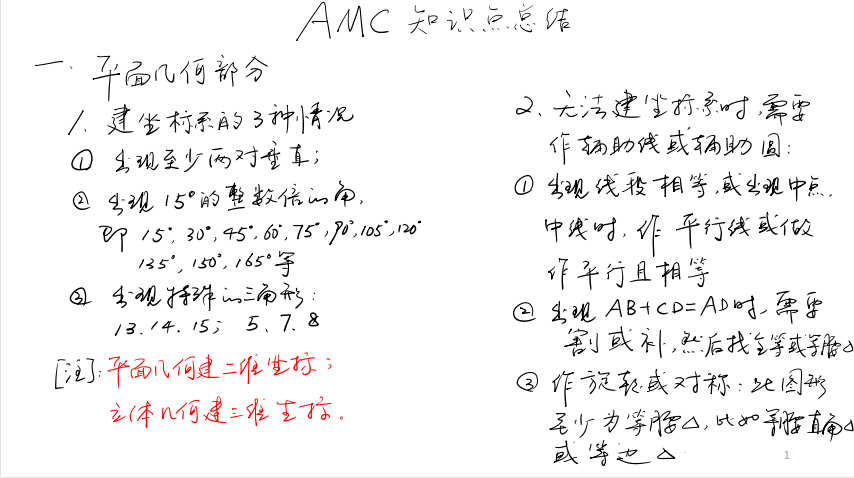 AMC 知识点总结
一. 平面几何部分
1. 建坐标系的3种情况
① 出现至少两对垂直;
② 出现15°的整数倍的角,
即 15°, 30°, 45°, 60°, 75°, 90°, 105°, 120°
135°, 150°, 165° 等
③ 出现特殊的三角形:
13. 14. 15; 5. 7. 8
[注]: 平面几何建二维坐标;
立体几何建三维坐标.
2. 无法建坐标系时, 需要
作辅助线或辅助圆:
① 出现线段相等, 或出现中点,
中线时, 作 平行线或做
作平行且相等
② 出现 AB+CD=AD时, 需要
割或补, 然后找全等或等腰△
③ 作旋转或对称: 此图形
至少为等腰△, 比如等腰直角△
或 等边 △
1